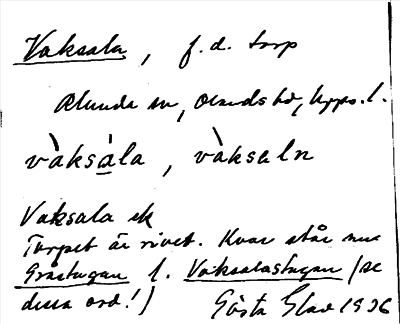 Vaksala, f.d. torp
Alunda sn, Olands hd, Upps. l.
vàksála, vàksaln
Vaksala sk
Torpet är rivet. Kvar står nu
Gråstugan l. Vaksalastugan (se
dessa ord!) Gösta Glad 1936